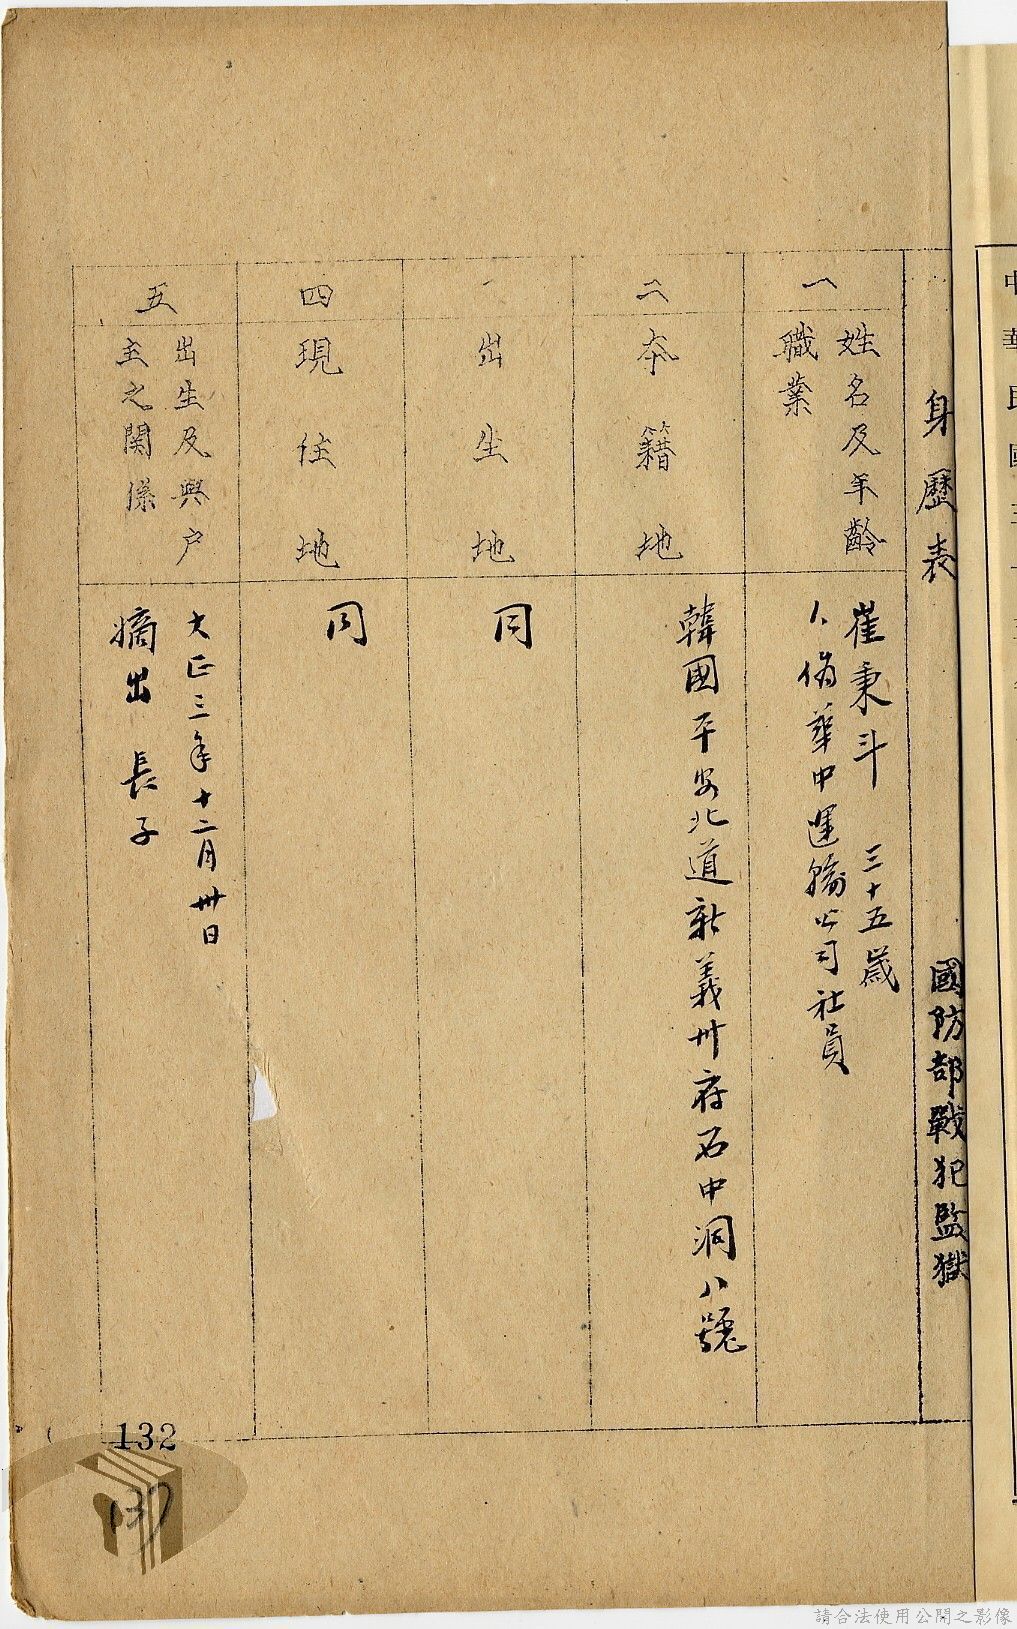 身歷表
國防部戰犯監獄
一
姓名及年齡
職業
崔秉斗 三十五歲
偽華中運輸公司社員
二
本籍地
韓國平安北道新義州府石中洞八號
出生地
同
四
現住地
同
五
出生及與户
主之関係
大正三年十二月卅日
摘出 長子
132
137
中華民國三十
請合法使用公開之影像